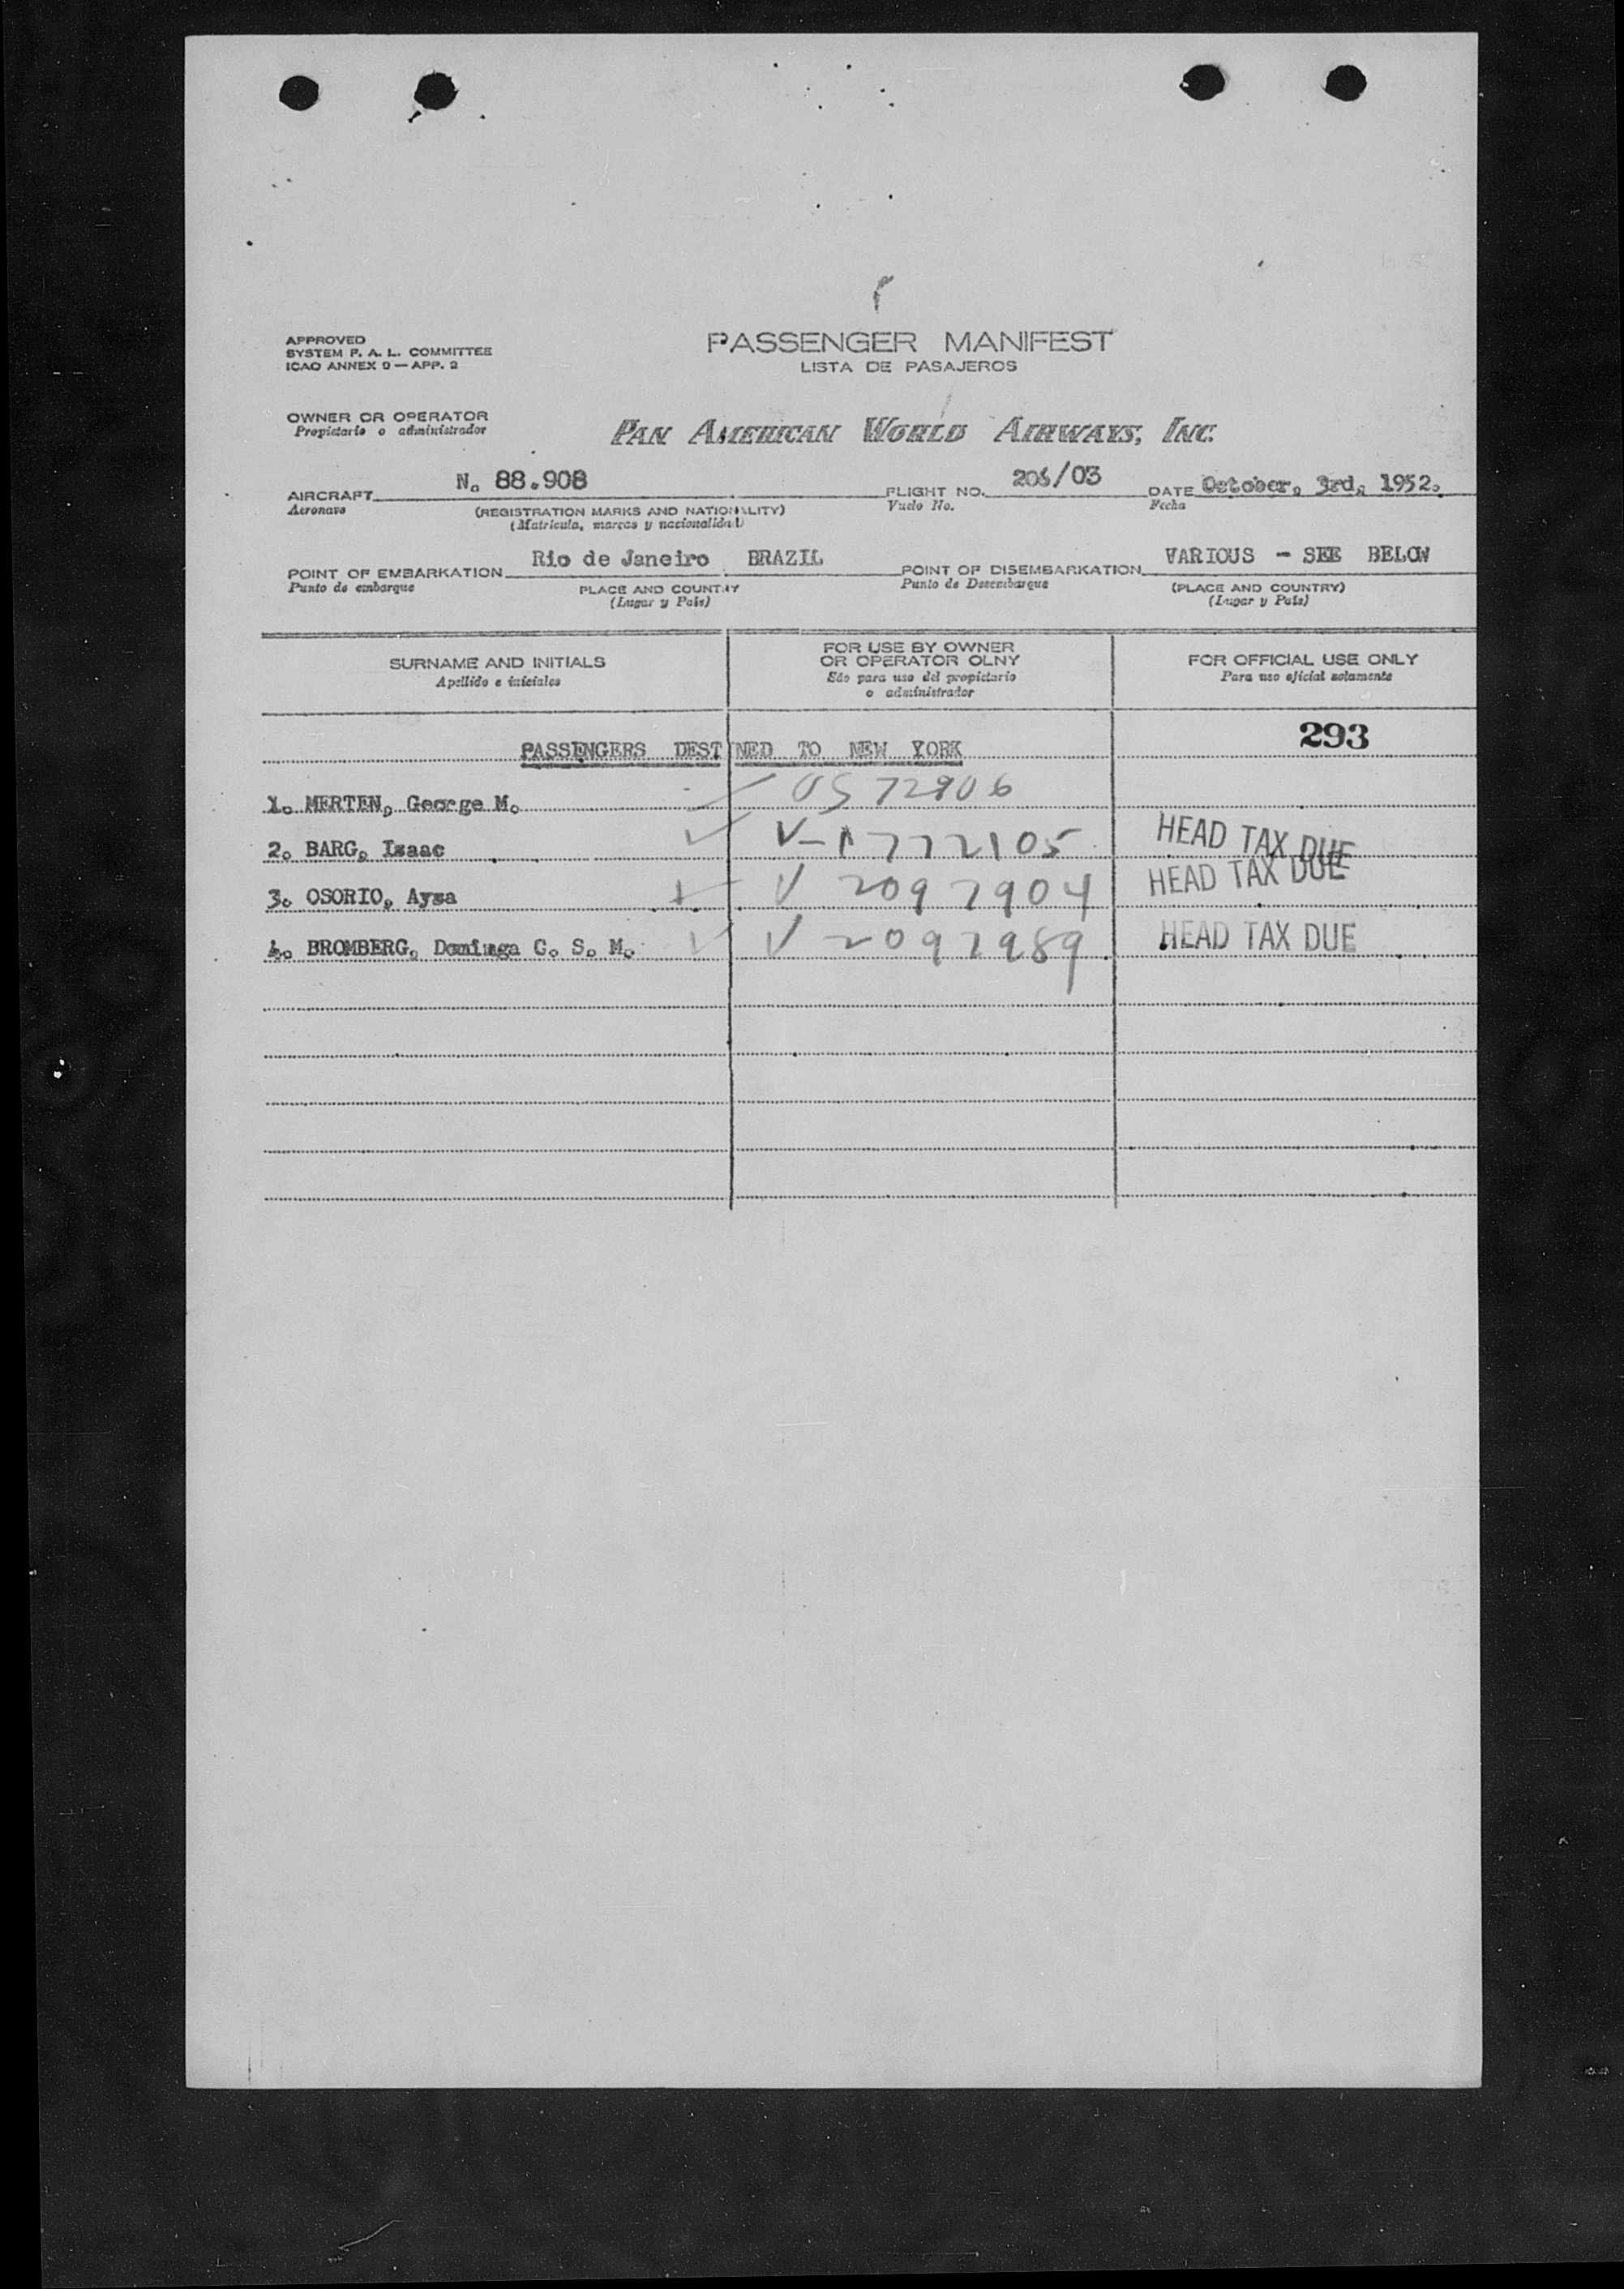 APPROVED
SYSTEM P. A. L. COMMITTEE
ICAO ANNEX 9 — APP. 2
PASSENGER MANIFEST
LISTA DE PASAJEROS
OWNER OR OPERATOR
Propietario o administrador
PAN AMERICAN WORLD AIRWAYS, INC.
AIRCRAFT N. 88.908 FLIGHT NO. 206/03 DATE October, 3rd, 1952.
Aeronave (REGISTRATION MARKS AND NATIONALITY) Vuelo No. Fecha
(Matricula, marcas y nacionalidad)
POINT OF EMBARKATION Rio de Janeiro BRAZIL POINT OF DISEMBARKATION VARIOUS - SEE BELOW
Punto de embarque PLACE AND COUNTRY Punto de Desembarque (PLACE AND COUNTRY)
(Lugar y Pais) (Lugar y Pais)
SURNAME AND INITIALS
Apellido e iniciales
FOR USE BY OWNER
OR OPERATOR OLNY
Sóo para uso del propietario
o administrador
FOR OFFICIAL USE ONLY
Para uso oficial solamente
PASSENGERS DESTINED TO NEW YORK 293
1. MERTEN, George M. US 72906
2. BARG, Isaac V-1772105 HEAD TAX DUE
3. OSORIO, Aysa V 2097904 HEAD TAX DUE
4. BROMBERG, Dominga C. S. M. V 2097989 HEAD TAX DUE